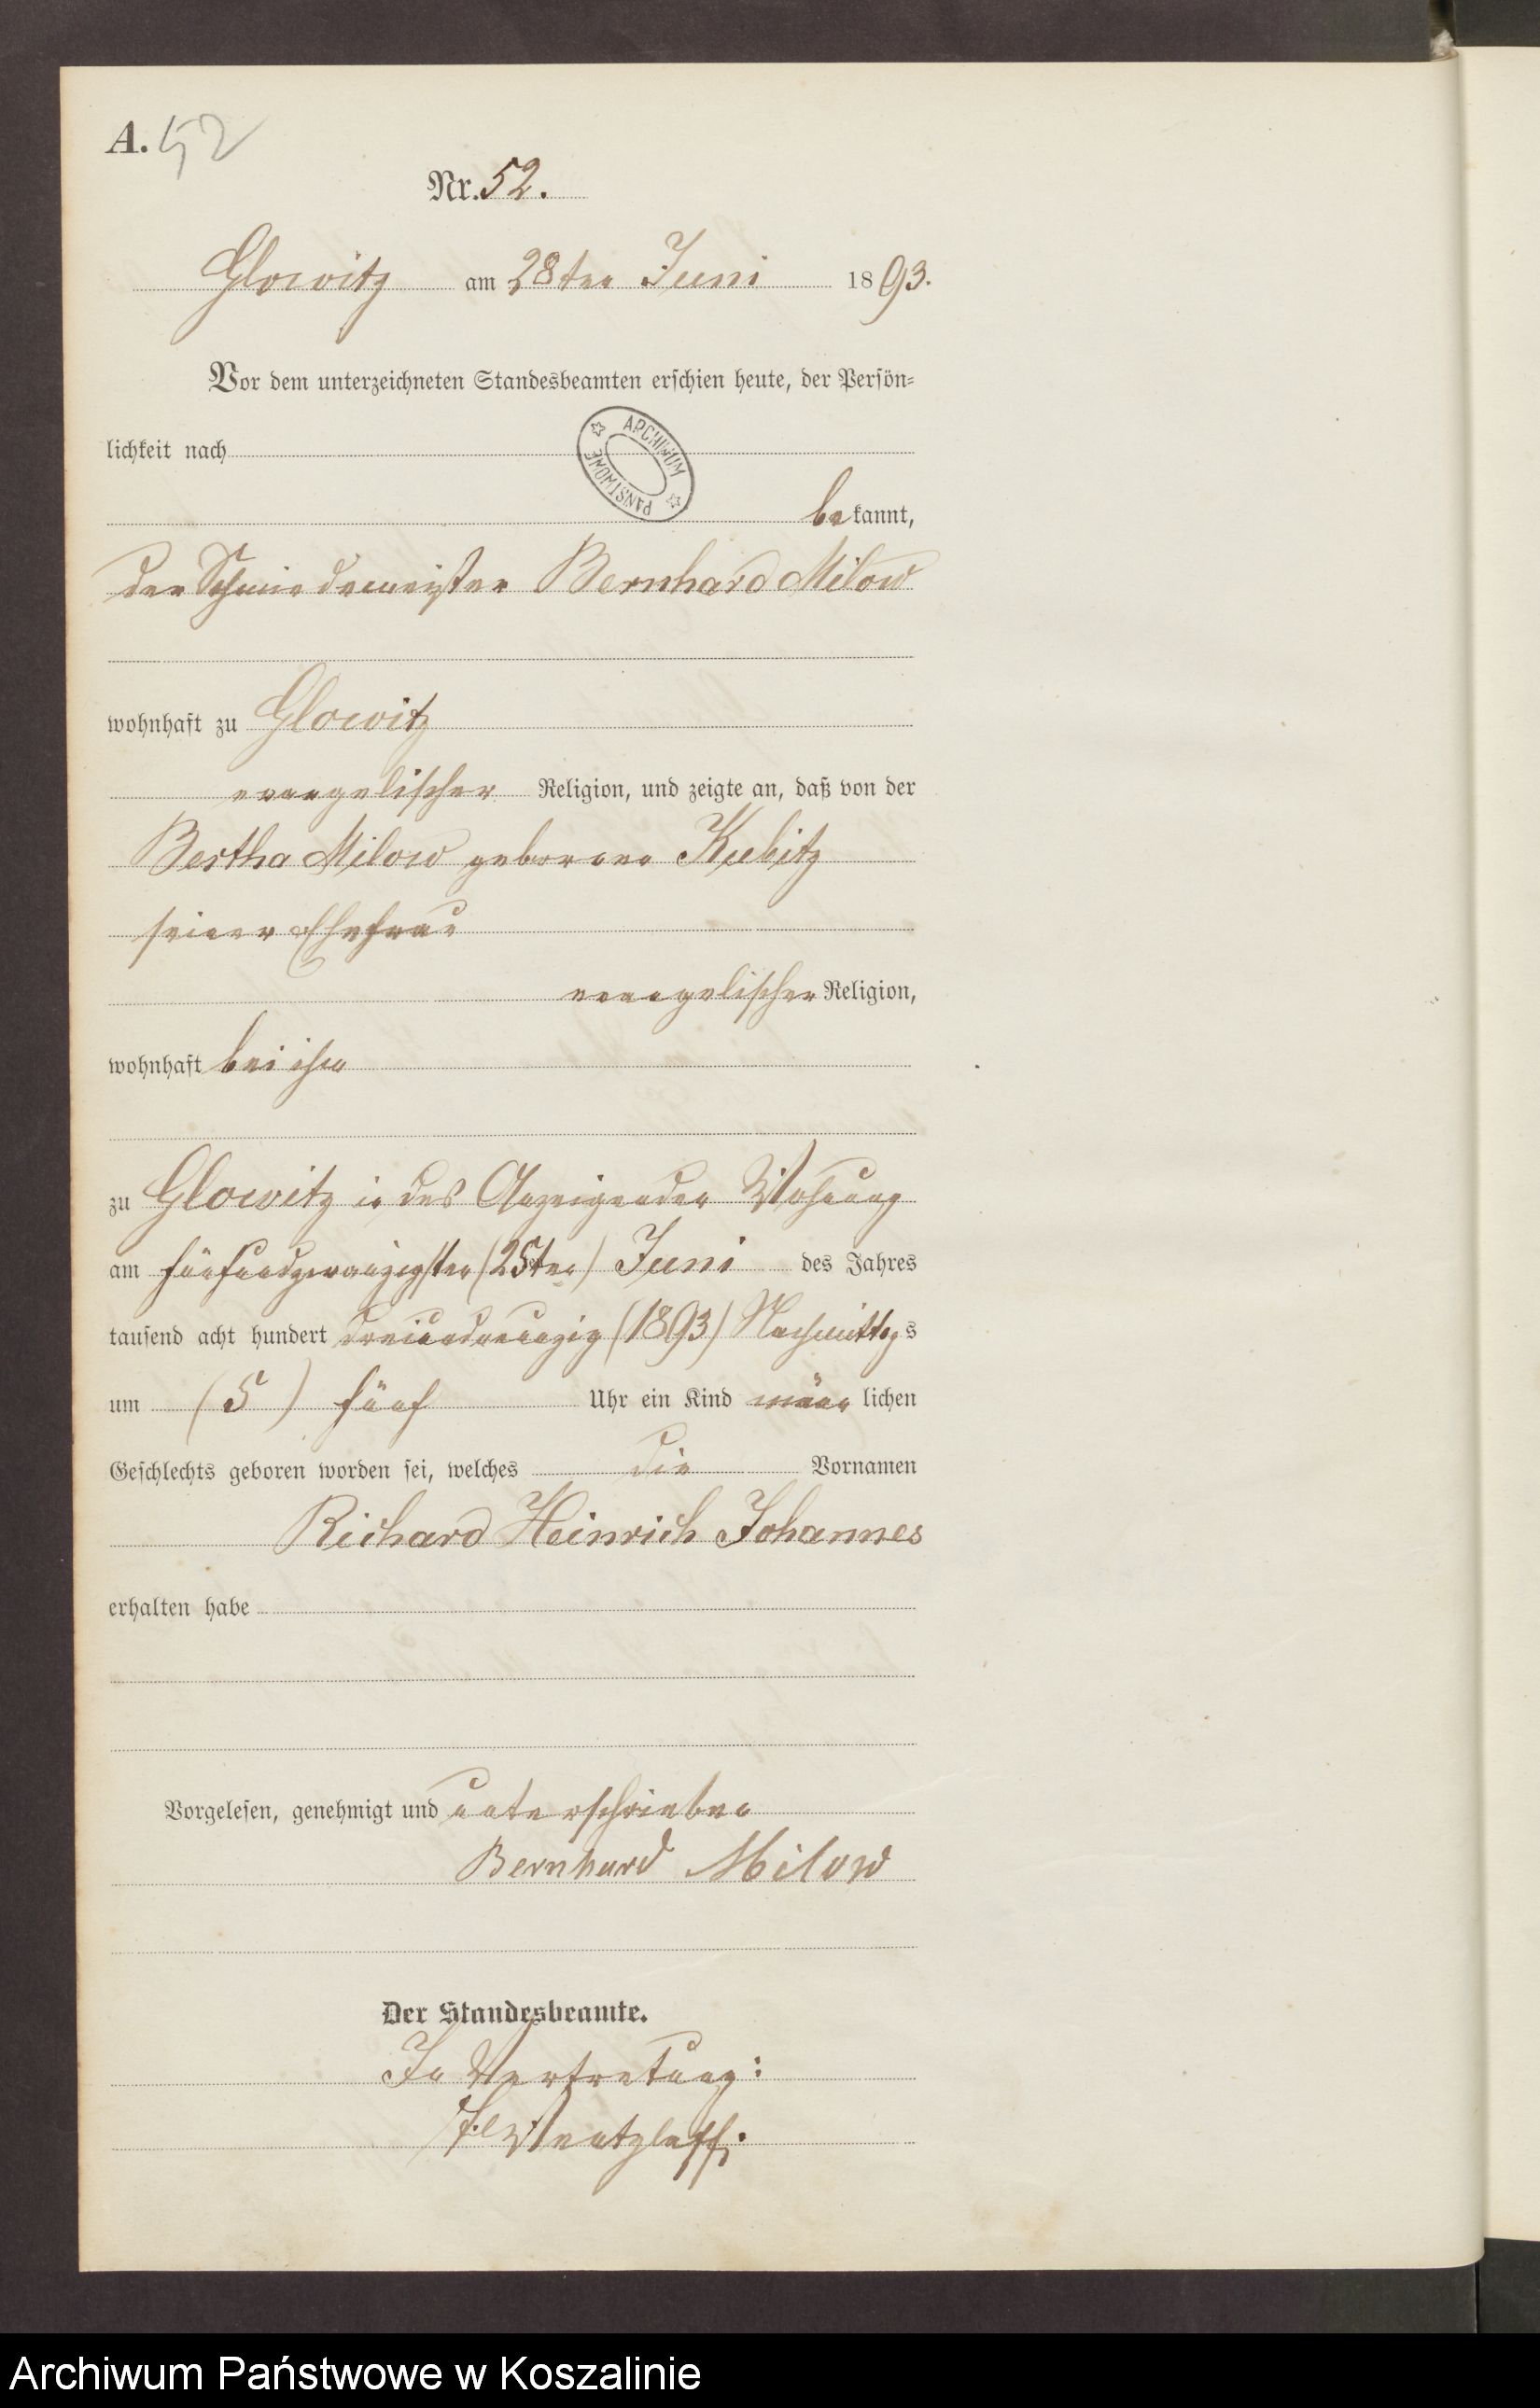 A. 52
Nr. 52.
Glowitz am 28ten Juni 1893.
Vor dem unterzeichneten Standesbeamten erschien heute, der Persön=
lichkeit nach
ARCHIWUM PAŃSTWOWE
bekannt,
der Schmiedemeister Bernhard Milow
wohnhaft zu Glowitz
evangelischer Religion, und zeigte an, daß von der
Bertha Milow geborene Kubitz
seiner Ehefrau
evangelischer Religion,
wohnhaft bei ihm
zu Glowitz in des Anzeigenden Wohnung
am fünfundzwanzigsten (25ten) Juni des Jahres
tausend acht hundert dreiundneunzig (1893) Nachmittags
um (5) fünf Uhr ein Kind männlichen
Geschlechts geboren worden sei, welches die Vornamen
Richard Heinrich Johannes
erhalten habe
Vorgelesen, genehmigt und unterschrieben
Bernhard Milow
Der Standesbeamte.
In Vertretung:
Wentzlaff.
Archiwum Państwowe w Koszalinie